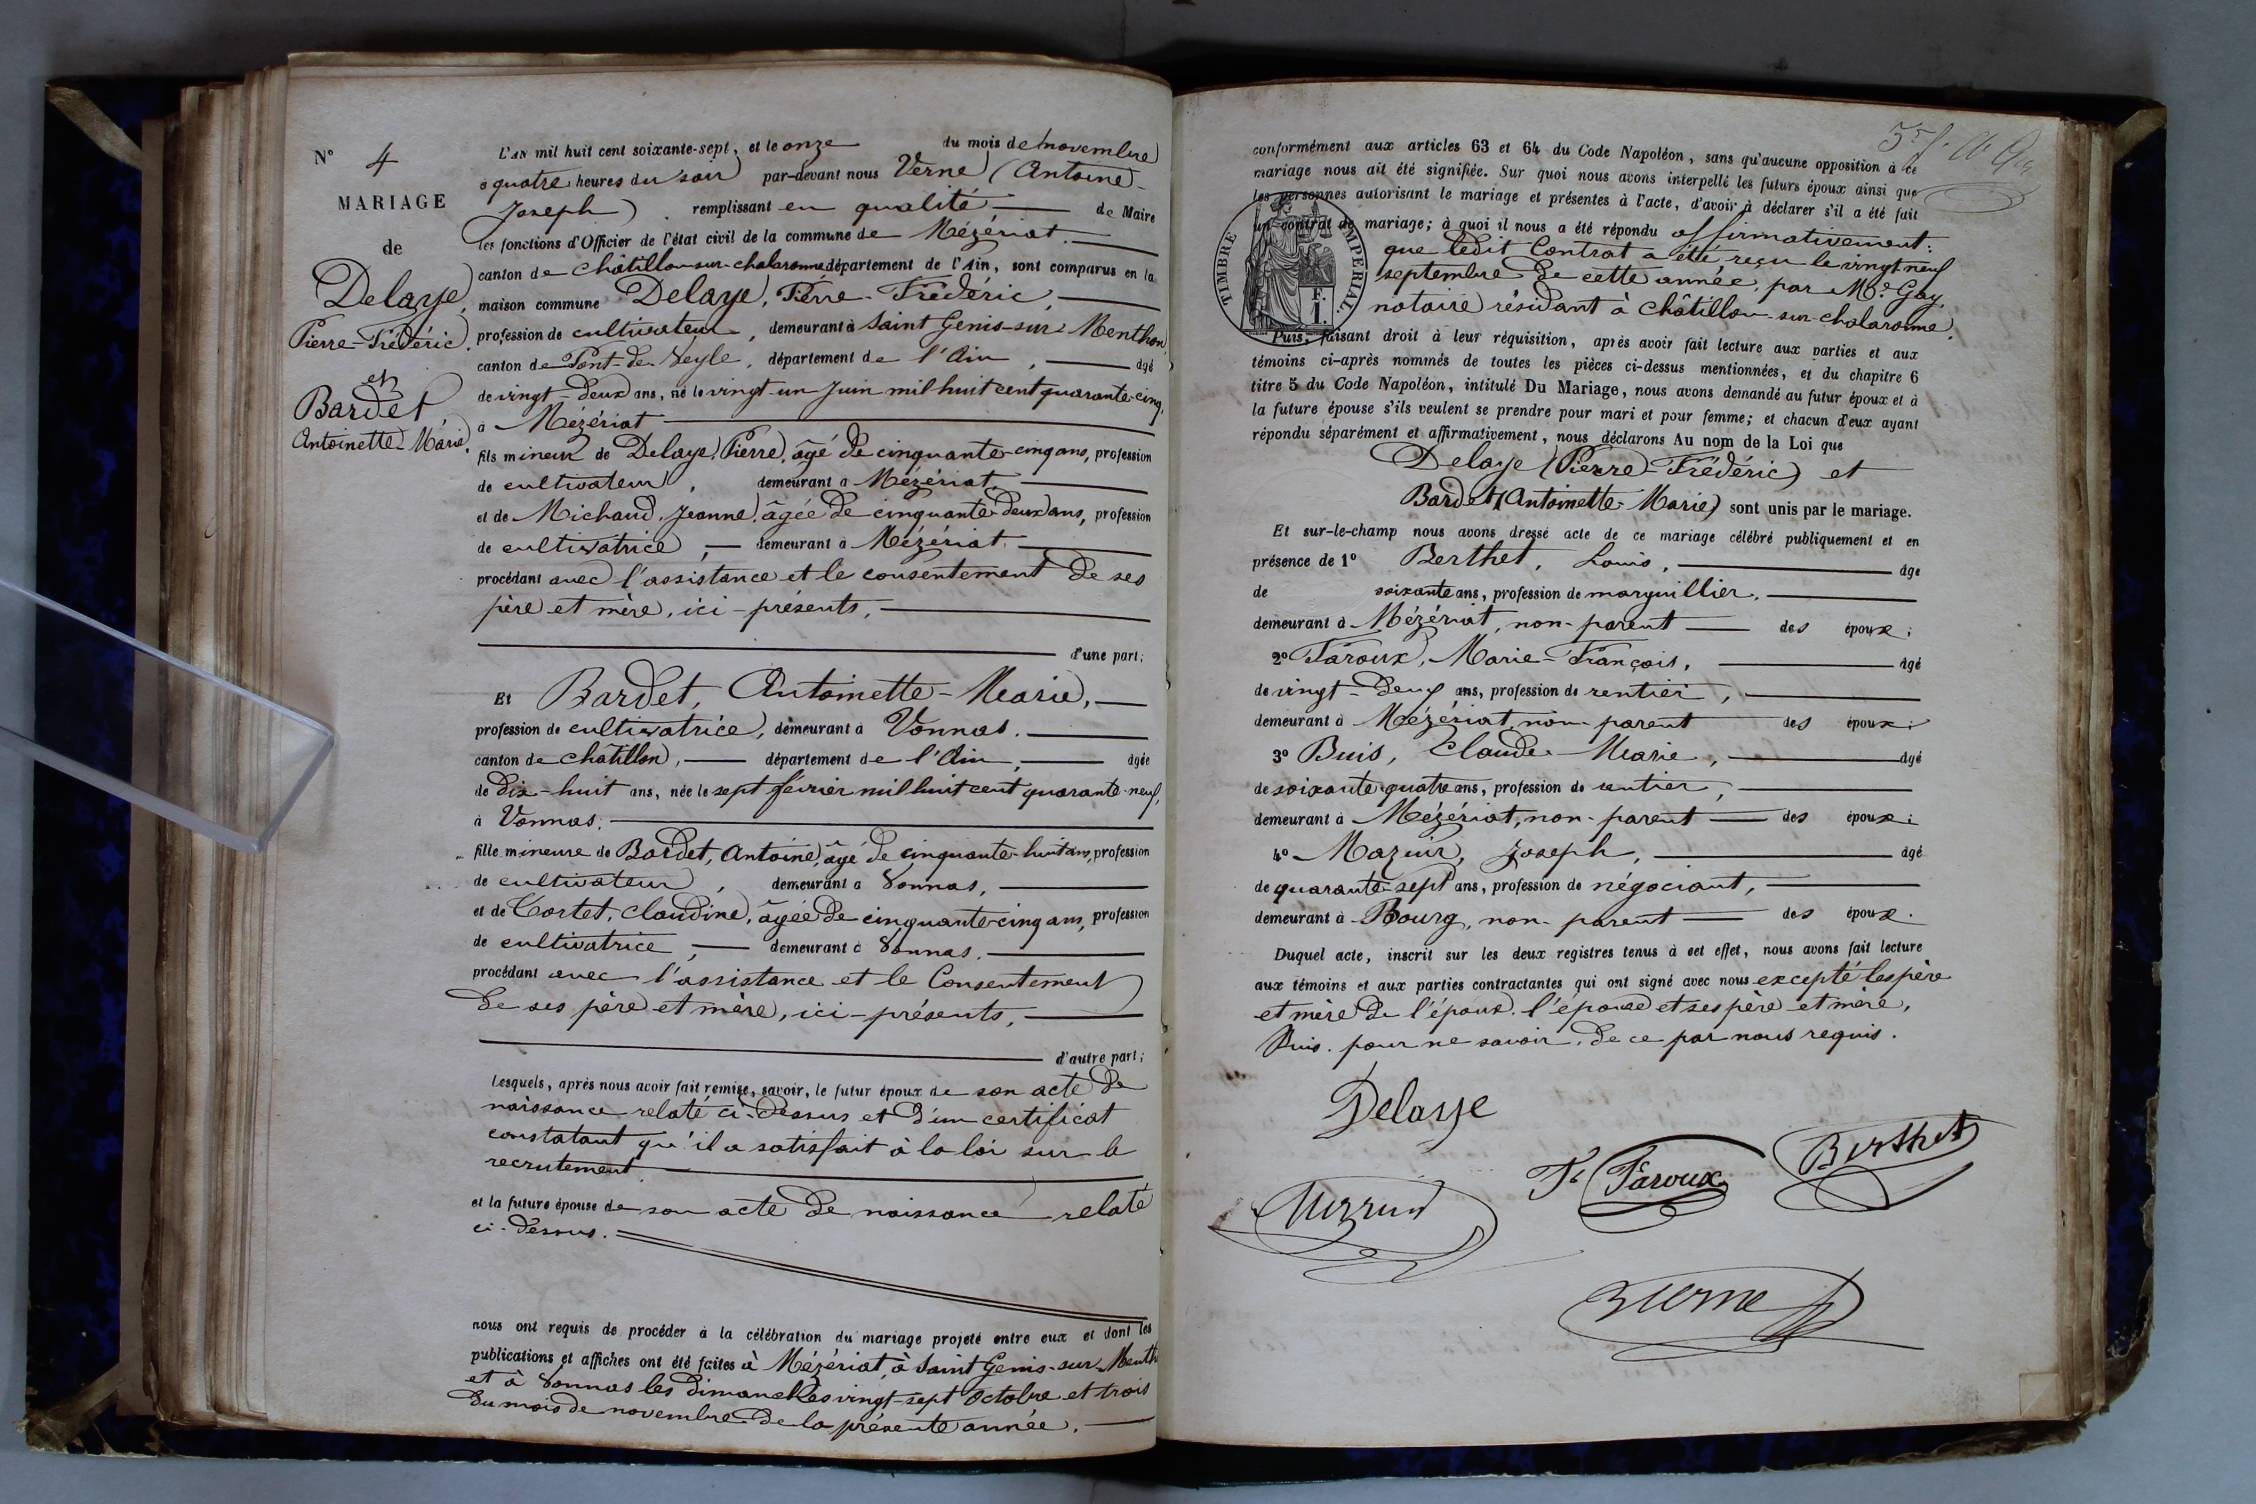 N° 4
MARIAGE
de
Delaye,
Pierre-Frédéric.
et
Bardet
Antoinette-Marie.
L'AN mil huit cent soixante-sept, et le onze du mois de novembre
à quatre heures du soir par-devant nous Verne (Antoine-
Joseph) remplissant en qualité de Maire
les fonctions d'Officier de l'état civil de la commune de Mézériat.
canton de Châtillon-sur-chalaronne département de l'Ain, sont comparus en la
maison commune Delaye, Pierre-Frédéric,
profession de cultivateur, demeurant à Saint Genis-sur-Menthon,
canton de Pont-de-Veyle, département de l'Ain, âgé
de vingt-deux ans, né le vingt-un Juin mil huit cent quarante-cinq,
à Mézériat
fils mineur de Delaye, Pierre, âgé de cinquante-cinq ans, profession
de cultivateur, demeurant à Mézériat,
et de Michaud, Jeanne, âgée de cinquante-deux ans, profession
de cultivatrice, demeurant à Mézériat.
procédant avec l'assistance et le consentement de ses
père et mère, ici-présents,
d'une part;
Et Bardet, Antoinette-Marie,
profession de cultivatrice, demeurant à Vonnas.
canton de châtillon, département de l'Ain, âgée
de dix-huit ans, née le sept février mil huit cent quarante-neuf,
à Vonnas.
fille mineure de Bardet, Antoine, âgé de cinquante-huit ans, profession
de cultivateur, demeurant à Vonnas,
et de Cortet, Claudine, âgée de cinquante-cinq ans, profession
de cultivatrice, demeurant à Vonnas.
procédant avec l'assistance et le Consentement
de ses père et mère, ici-présents,
d'autre part;
Lesquels, après nous avoir fait remise, savoir, le futur époux de son acte de
naissance relaté ci-dessus et d'un certificat
constatant qu'il a satisfait à la loi sur le
recrutement
et la future épouse de son acte de naissance relaté
ci-dessus.
nous ont requis de procéder à la célébration du mariage projeté entre eux et dont les
publications et affiches ont été faites à Mézériat, à Saint Genis-sur-Menth
et à Vonnas les dimanches vingt-sept Octobre et trois
du mois de novembre de la présente année.
conformément aux articles 63 et 64 du Code Napoléon, sans qu'aucune opposition à ce
mariage nous ait été signifiée. Sur quoi nous avons interpellé les futurs époux ainsi que
les personnes autorisant le mariage et présentes à l'acte, d'avoir à déclarer s'il a été fait
un contrat de mariage; à quoi il nous a été répondu affirmativement:
que ledit Contrat a été reçu le vingt neuf
septembre de cette année, par Me Gay,
notaire résidant à Châtillon-sur-chalaronne.
TIMBRE IMPERIAL.
F.
1.
Puis, faisant droit à leur réquisition, après avoir fait lecture aux parties et aux
témoins ci-après nommés de toutes les pièces ci-dessus mentionnées, et du chapitre 6
titre 5 du Code Napoléon, intitulé Du Mariage, nous avons demandé au futur époux et à
la future épouse s'ils veulent se prendre pour mari et pour femme; et chacun d'eux ayant
répondu séparément et affirmativement, nous déclarons Au nom de la Loi que
Delaye (Pierre-Frédéric) et
Bardet (Antoinette-Marie) sont unis par le mariage.
Et sur-le-champ nous avons dressé acte de ce mariage célébré publiquement et en
présence de 1° Berthet, Louis, âge
de soixante ans, profession de marguillier,
demeurant à Mézériat, non-parent des époux;
2° Faroux, Marie-François, âgé
de vingt-deux ans, profession de rentier,
demeurant à Mézériat, non-parent des époux;
3° Buis, Claude-Marie, âgé
de soixante-quatre ans, profession de rentier,
demeurant à Mézériat, non-parent des époux;
4° Mazuir, Joseph, âgé
de quarante-sept ans, profession de négociant,
demeurant à Bourg, non-parent des époux.
Duquel acte, inscrit sur les deux registres tenus à cet effet, nous avons fait lecture
aux témoins et aux parties contractantes qui ont signé avec nous excepté les père
et mère de l'époux, l'épouse et ses père et mère,
Buis, pour ne savoir, de ce par nous requis.
Delaye
Berthet
Ft Faroux
Mazuir
Verne